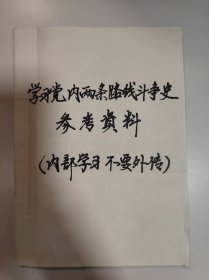 学习党内两条路线斗争史
参考資料
(内部学习不要外传)